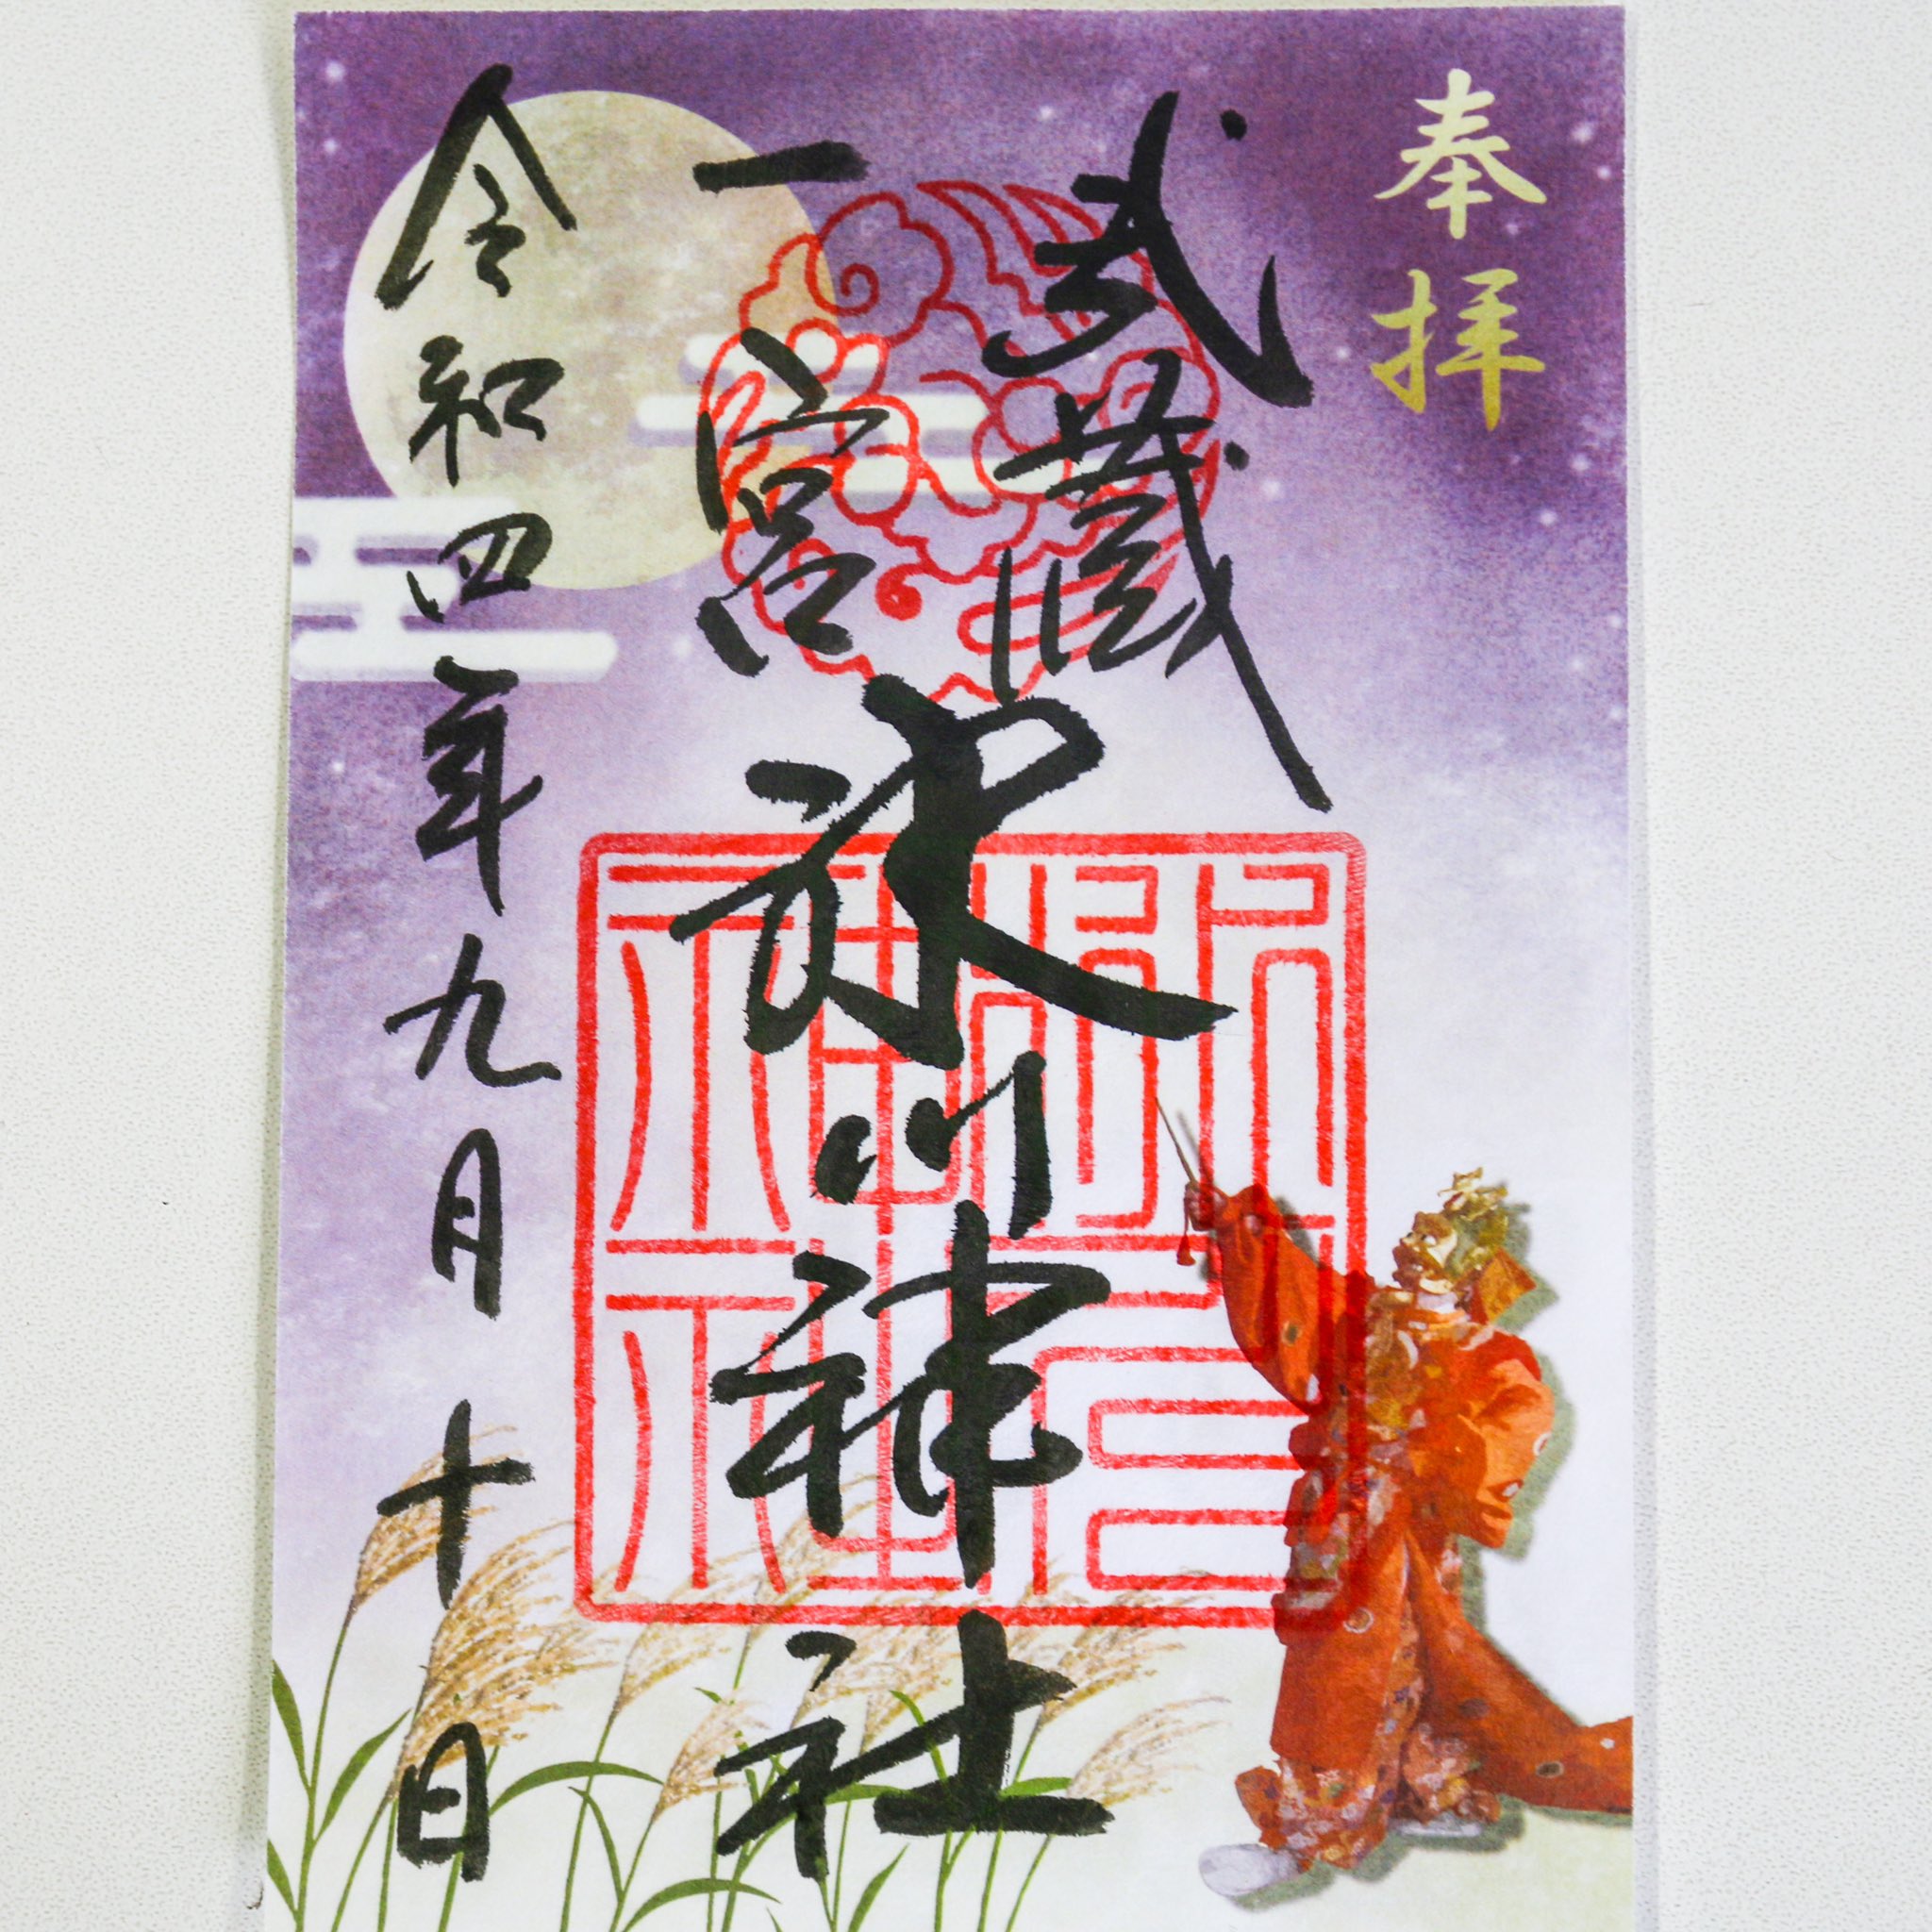 奉拝
武蔵
一宮
氷川神社
令和四年九月十日